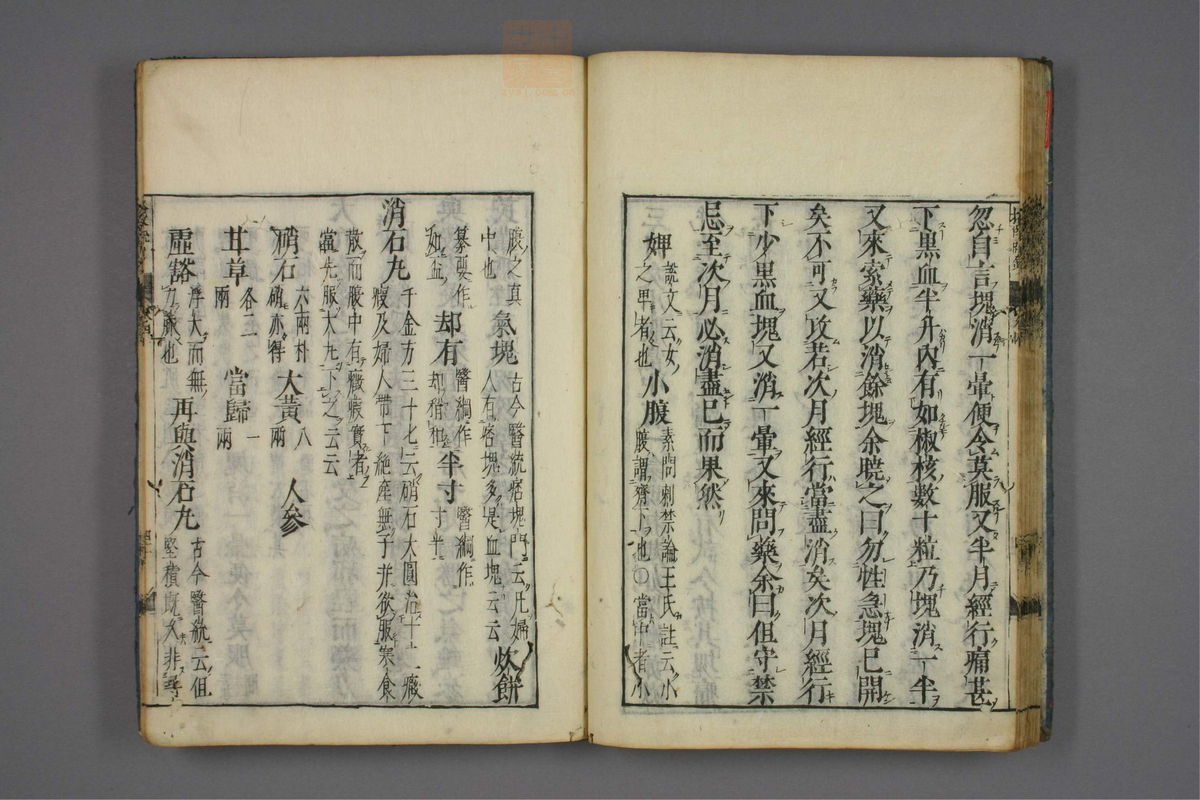 忽自言塊消一暈便令莫服又半月經行痛甚
下黒血半升内有如椒核數十粒乃塊消一半
又來索藥以消餘塊余曉之曰勿性急塊已開
矣不可又攻若次月經行當盡消矣次月經行
下少黒血塊又消一暈又來問藥余曰但守禁
忌至次月必消盡已而果然
婢 說文云女之卑者也 小腹 素問刺禁論王氏註云小腹謂齊下也〇當中者小
腹之眞中也 氣塊 古今醫統痞塊門云凡婦人有痞塊多是血塊云云 炊餅
纂要作 却有 醫綱作却稍和 半寸 醫綱作寸半
消石丸 千金方三十七云硝石大圓治十二瘕
瘕及婦人帶下絶産無子并欲服寒食
散而腹中有癥瘕實者
當先服大丸下之云云
硝石 六兩朴硝亦得 大黄 八兩 人參
甘草 各二兩 當歸 一兩
虚豁 浮大而無力脉也 再與消石丸 古今醫統云但堅積既大非尋